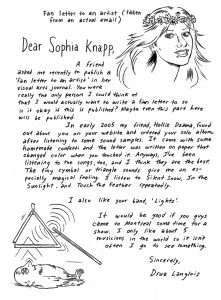 Fan letter to an artist (taken
from an actual email)
Dear Sophia Knapp,
A friend
asked me recently to publish a
'fan letter to an artist' in her
visual arts journal. You were
really the only person I could think of
that I would actually want to write a fan letter to so
is it okay if this is published? Maybe even this part here
will be published.
In early 2005 my friend, Hollie Dzama, found
out about you on your website and ordered your solo album
after listening to some sound samples. It came with some
homemade confetti and the letter was written on paper that
changed color when you touched it. Anyways, I've been
listening to the songs, too, and I think they are the best.
The tiny cymbal or triangle sounds give me an es-
pecially magical feeling. I listen to Silent Snow, In the
Sunlight, and Touch the Feather repeatedly.
I also like your band, 'Lights'
It would be good if you guys
came to Montreal some time for a
show. I only like about 5
musicians in the world so it isn't
often I go to see something.
Sincerely,
Drue Langlois